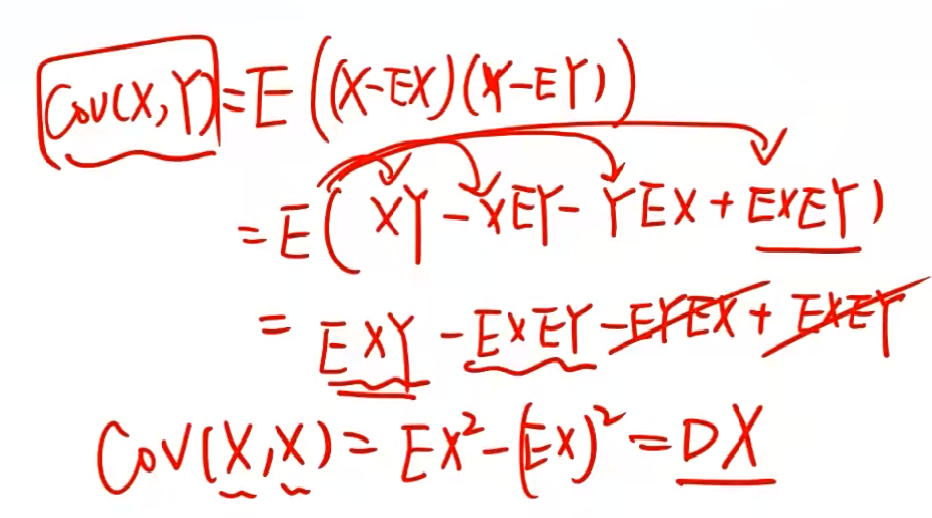 Cov(X,Y) = E((X-EX)(Y-EY))
= E(XY - XEY - YEX + EXEY)
= EXY - EXEY - EYEX + EXEY
COV(X,X) = EX² - (EX)² = DX